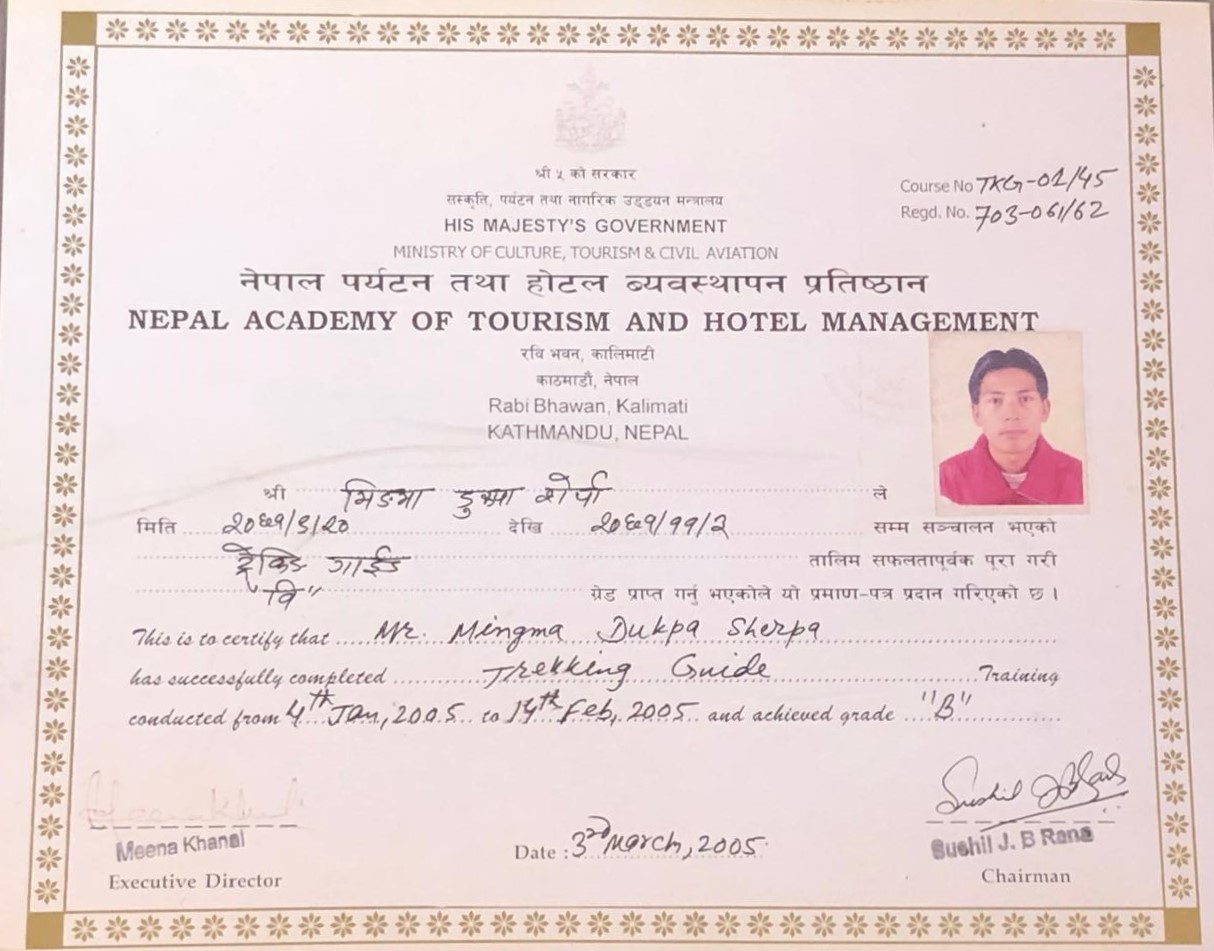 श्री ५ को सरकार
सस्कृति, पर्यटन तथा नागरिक उड्डयन मन्त्रालय
HIS MAJESTY'S GOVERNMENT
MINISTRY OF CULTURE, TOURISM & CIVIL AVIATION
Course No TKG-01/45
Regd. No. 703-061/62
नेपाल पर्यटन तथा होटल ब्यवस्थापन प्रतिष्ठान
NEPAL ACADEMY OF TOURISM AND HOTEL MANAGEMENT
रवि भवन, कालिमाटी
काठमाडौ, नेपाल
Rabi Bhawan, Kalimati
KATHMANDU, NEPAL
श्री मिङमा डुक्पा शेर्पा ले
मिति २०६१/९/२० देखि २०६१/११/३ सम्म सञ्चालन भएको
ट्रेकिङ गाईड तालिम सफलतापूर्वक पूरा गरी
"वि" ग्रेड प्राप्त गर्नु भएकोले यो प्रमाण-पत्र प्रदान गरिएको छ ।
This is to certify that Mr. Mingma Dukpa Sherpa
has successfully completed Trekking Guide Training
conducted from 4th Jan, 2005 to 14th Feb, 2005 and achieved grade "B"
Meena Khanal
Executive Director
Date : 3rd March, 2005
Sushil J. B Rana
Chairman